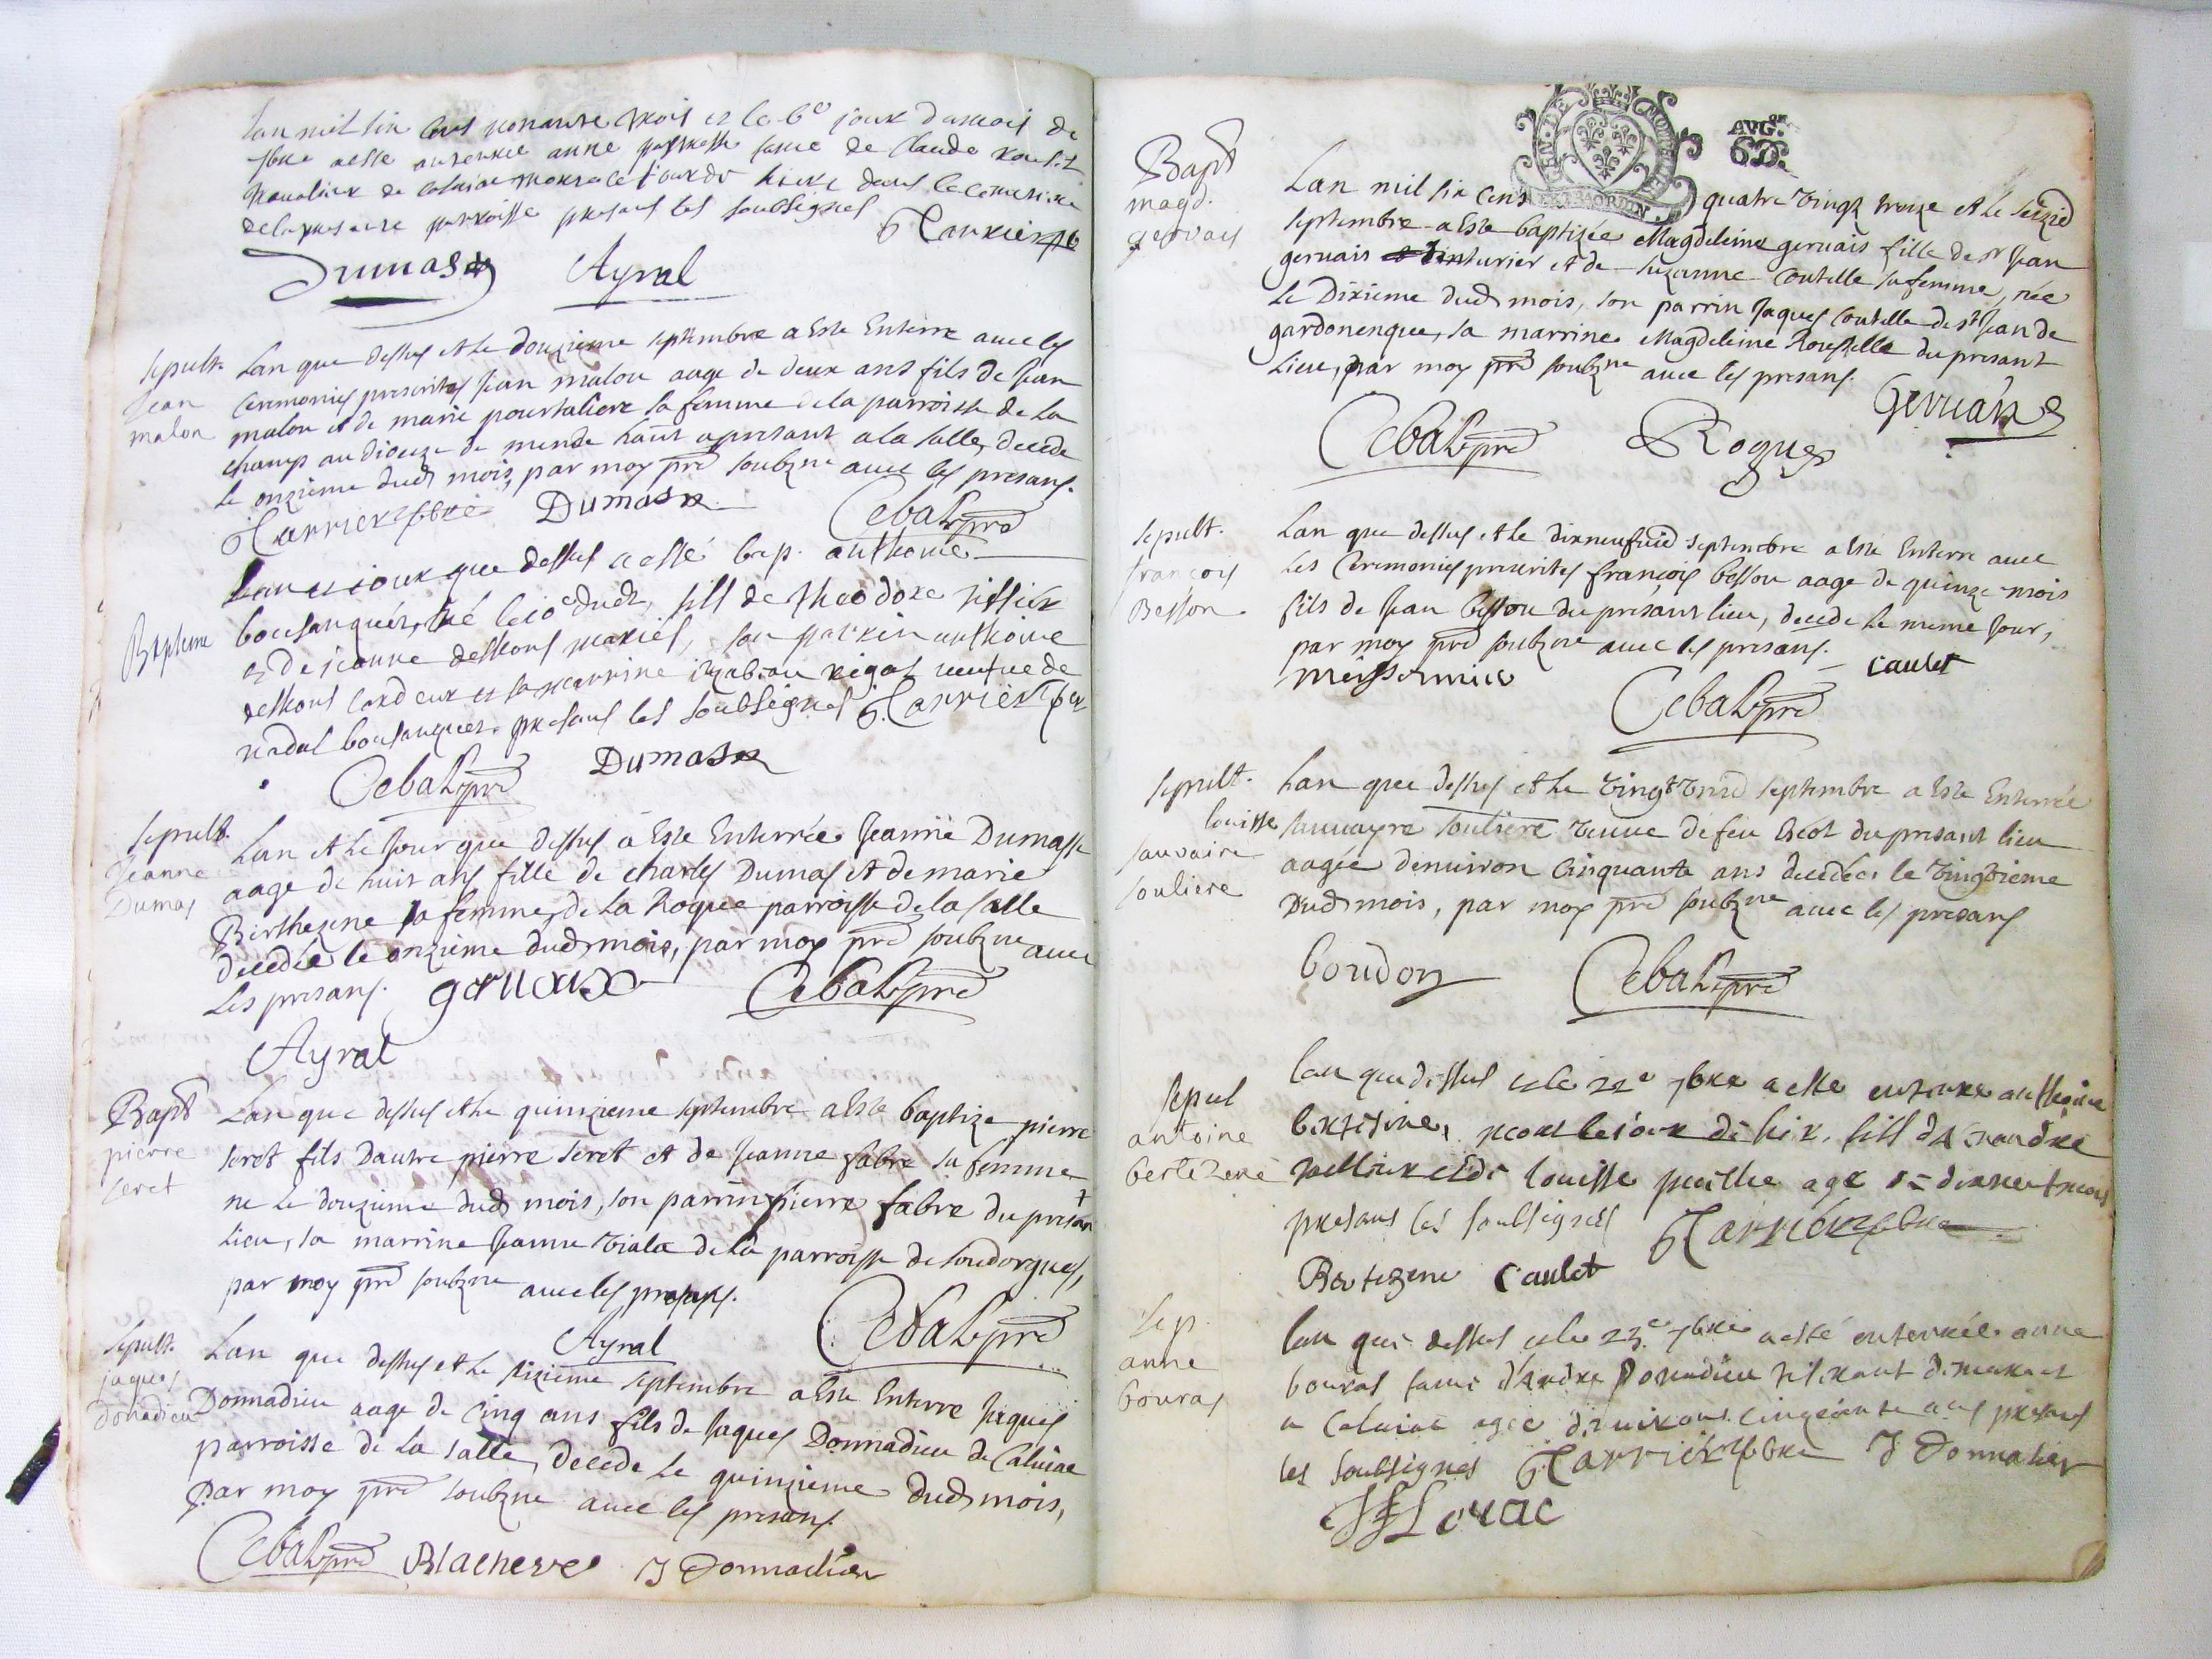 Lan mil six cens nonante trois et le 6e jour du mois de
7bre a esté enterrée anne femme de Claude
de Caluiac morte le jour de hier dans le cemetiere
de la presente parroisse presans les soubsignes
Carriere
Dumas Ayral
sepult.
Jean
malon
Lan que dessus et le douzieme septembre a Este Enterre auec les
Ceremonies prescrites Jean malou aage de deux ans fils de Jean
malou et de marie pourtaliere sa femme de la parroisse de La
champ au dioceze de mende hant a presant a la salle, decede
le onzieme dud mois, par moy pre soubzne auec les presans.
Carriere pbre Dumas Cebal pre
Bapteme
Lan et jour que dessus a esté bap. anthoine
boulanguer, né le 10e dud, fils de theodore
et de jeanne destrous mariés, son parrin anthoine
destrous cardeur et sa marrine izabeau rigal veufue de
nadal boulanguer. presans les soubsignes Carriere pbr
Cebal pre Dumas
sepult.
Jeanne
Dumas
Lan et le Jour que dessus a Este Enterrée Jeanne Dumasse
aage de huit ans fille de charles Dumas et de marie
Birthezene sa femme, de La Roque parroisse de la salle
decedée le onzieme dud mois, par moy pre soubzne auec
les presans. geruaix Cebal pre
Ayral
Bapt
pierre
seret
Lan que dessus et le quinzieme septembre a Este baptize pierre
seret fils dautre pierre seret et de Jeanne fabre sa femme
ne le douzieme dud mois, son parrin pierre fabre du presan
Lieu, sa marrine Jeanne viala de la parroisse de soudorgues,
par moy pre soubzne auec les presans.
Ayral Cebal pre
sepult.
jaques
donadieu
Lan que dessus et le sizieme septembre a Este Enterre Jaques
Donnadieu aage de cinq ans fils de Jaques Donnadieu de Caluiac
parroisse de La salle, decede le quinzieme dud mois,
par moy pre soubzne auec les presans.
Cebal pre Blachere J Donnadieu
GEN. DE MONTPELLIER
AVG.on
6D.
Bapt
magd.
gervais
Lan mil six cens quatre vingt treize et le seizie
septembre a Este baptizée Magdeleine geruais fille de sr Jean
geruais teinturier et de suzanne Coutelle sa femme, née
le Dixieme dud mois, son parrin Jaques Coutelle de st Jean de
gardonenque, sa marrine Magdeleine Rousselle du presant
Lieu, par moy pre soubzne auec les presans.
Cebal pre Roques Geruais
sepult.
françois
Besson
Lan que dessus et le dixneufuie septembre a Este Enterre auec
les Ceremonies prescrites françois besson aage de quinze mois
fils de Jean besson du presant lieu, decede le meme Jour,
par moy pre soubzne auec les presans.
meissonnier Cebal pre caulet
sepult.
louisse
sauvaire
souliere
Lan que dessus et le vingt vnie septembre a Este Enterrée
sauuayre souliere veuue de feu du presant lieu
aagée denuiron Cinquante ans decedée le vingtieme
Dud mois, par moy pre soubzne auec les presans
boudon Cebal pre
sepul
antoine
bertezene
lan que dessus et le 22e 7bre a esté enterre anthoine
bertezene, mort le jour de hier, fils d'Antoine
et de louisse age de dixneuf mois
presans les soubsignes Carriere pbre
Bertezene Caulet
sep.
anne
bouras
lan que dessus et le 23e 7bre a esté enterrée anne
bouras fame d'Andre Donadieu
a Caluiac agee denuiron cinquante ans presans
les soubsignes Carriere pbre J Donnadieu